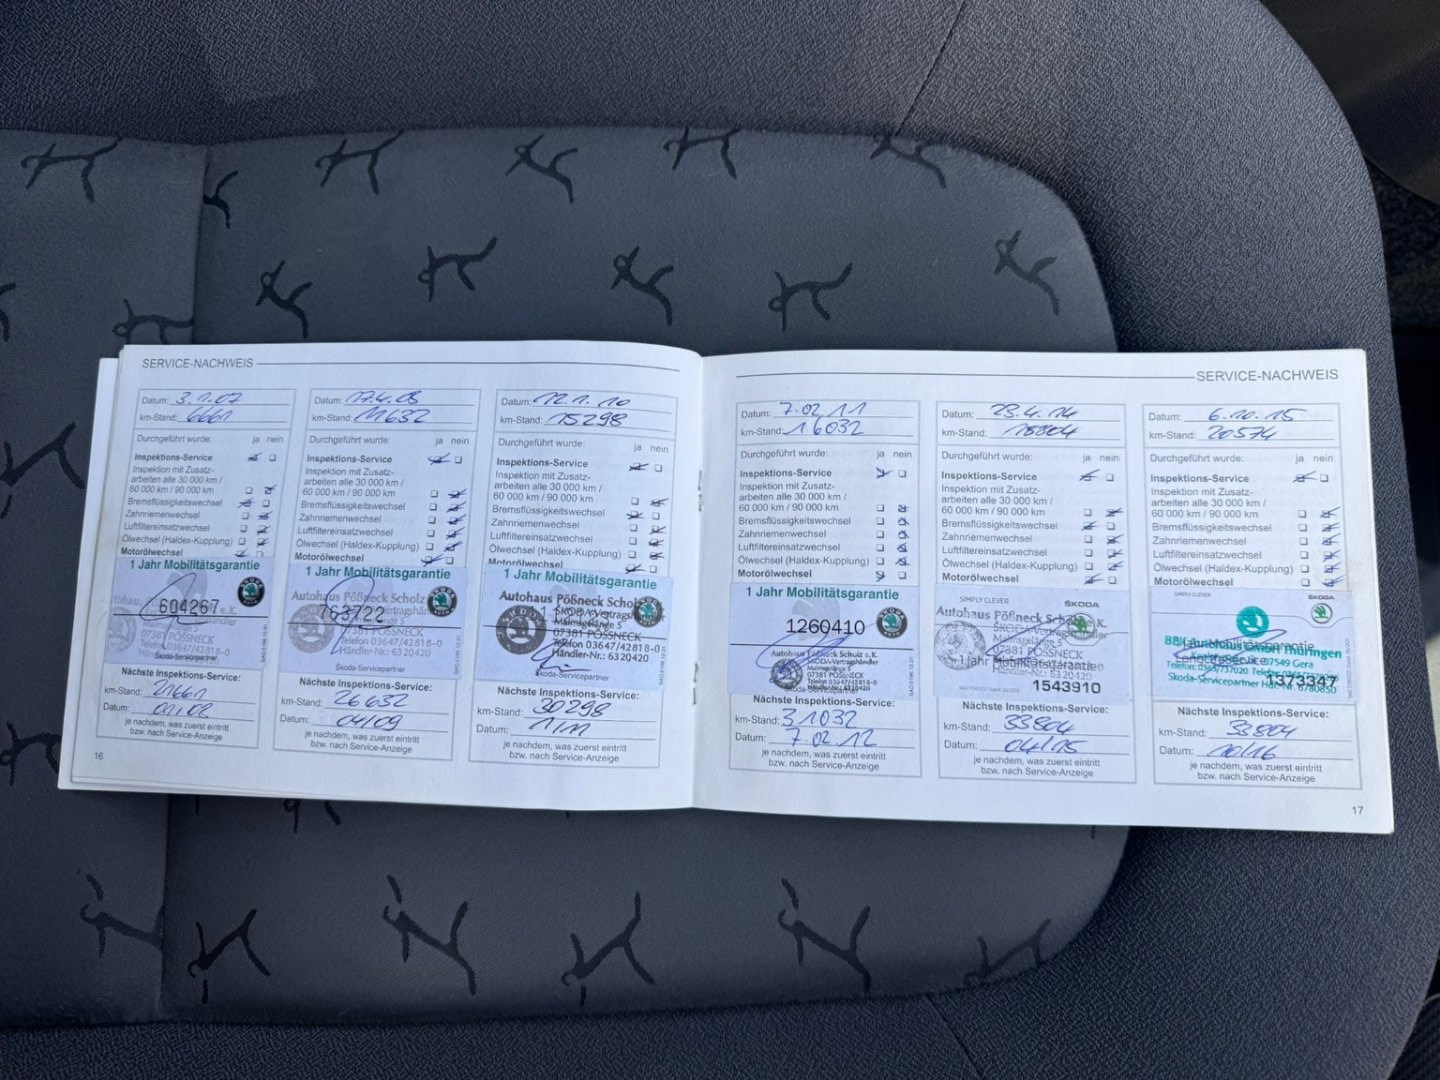 SERVICE-NACHWEIS
Datum: 3.1.07
km-Stand: 6661
Durchgeführt wurde: ja nein
Inspektions-Service
Inspektion mit Zusatz-
arbeiten alle 30 000 km /
60 000 km / 90 000 km
Bremsflüssigkeitswechsel
Zahnriemenwechsel
Luftfiltereinsatzwechsel
Ölwechsel (Haldex-Kupplung)
Motorölwechsel
1 Jahr Mobilitätsgarantie
604267
07381 PÖSSNECK
Skoda-Servicepartner
Nächste Inspektions-Service:
km-Stand: 21661
Datum: 01/08
je nachdem, was zuerst eintritt
bzw. nach Service-Anzeige
16
Datum: 17.4.08
km-Stand: 11632
Durchgeführt wurde: ja nein
Inspektions-Service
Inspektion mit Zusatz-
arbeiten alle 30 000 km /
60 000 km / 90 000 km
Bremsflüssigkeitswechsel
Zahnriemenwechsel
Luftfiltereinsatzwechsel
Ölwechsel (Haldex-Kupplung)
Motorölwechsel
1 Jahr Mobilitätsgarantie
Autohaus Pößneck Scholz
763722
07381 PÖSSNECK
Telefon 03647/42818-0
Händler-Nr.: 6320420
Skoda-Servicepartner
Nächste Inspektions-Service:
km-Stand: 26632
Datum: 04/09
je nachdem, was zuerst eintritt
bzw. nach Service-Anzeige
Datum: 12.1.10
km-Stand: 15298
Durchgeführt wurde: ja nein
Inspektions-Service
Inspektion mit Zusatz-
arbeiten alle 30 000 km /
60 000 km / 90 000 km
Bremsflüssigkeitswechsel
Zahnriemenwechsel
Luftfiltereinsatzwechsel
Ölwechsel (Haldex-Kupplung)
Motorölwechsel
1 Jahr Mobilitätsgarantie
Autohaus Pößneck Scholz
07381 PÖSSNECK
Telefon 03647/42818-0
Händler-Nr.: 6320420
Skoda-Servicepartner
Nächste Inspektions-Service:
km-Stand: 30298
Datum: 1/11
je nachdem, was zuerst eintritt
bzw. nach Service-Anzeige
SERVICE-NACHWEIS
Datum: 7.02.11
km-Stand: 16032
Durchgeführt wurde: ja nein
Inspektions-Service
Inspektion mit Zusatz-
arbeiten alle 30 000 km /
60 000 km / 90 000 km
Bremsflüssigkeitswechsel
Zahnriemenwechsel
Luftfiltereinsatzwechsel
Ölwechsel (Haldex-Kupplung)
Motorölwechsel
1 Jahr Mobilitätsgarantie
1260410
Autohaus Pößneck Scholz e.K.
SKODA-Vertragshändler
07381 PÖSSNECK
Telefon 03647/42818-0
Händler-Nr.: 6320420
Skoda-Servicepartner
Nächste Inspektions-Service:
km-Stand: 31032
Datum: 7.02.12
je nachdem, was zuerst eintritt
bzw. nach Service-Anzeige
Datum: 23.4.14
km-Stand: 18804
Durchgeführt wurde: ja nein
Inspektions-Service
Inspektion mit Zusatz-
arbeiten alle 30 000 km /
60 000 km / 90 000 km
Bremsflüssigkeitswechsel
Zahnriemenwechsel
Luftfiltereinsatzwechsel
Ölwechsel (Haldex-Kupplung)
Motorölwechsel
SIMPLY CLEVER
ŠKODA
Autohaus Pößneck Scholz e. K.
07381 PÖSSNECK
1 Jahr Mobilitätsgarantie
1543910
Nächste Inspektions-Service:
km-Stand: 33804
Datum: 04/15
je nachdem, was zuerst eintritt
bzw. nach Service-Anzeige
Datum: 6.10.15
km-Stand: 20574
Durchgeführt wurde: ja nein
Inspektions-Service
Inspektion mit Zusatz-
arbeiten alle 30 000 km /
60 000 km / 90 000 km
Bremsflüssigkeitswechsel
Zahnriemenwechsel
Luftfiltereinsatzwechsel
Ölwechsel (Haldex-Kupplung)
Motorölwechsel
SIMPLY CLEVER
ŠKODA
1 Jahr Mobilitätsgarantie
07549 Gera
1373347
Skoda-Servicepartner
Nächste Inspektions-Service:
km-Stand: 33804
Datum: 10/16
je nachdem, was zuerst eintritt
bzw. nach Service-Anzeige
17